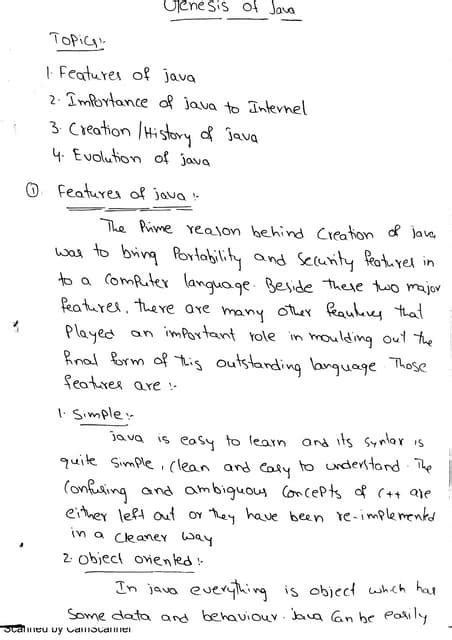 Genesis of Java
Topics:-
1. Features of java
2. Importance of java to Internet
3. Creation/History of java
4. Evolution of java
① Features of java :-
The Prime reason behind Creation of java
was to bring Portability and Security features in
to a Computer language. Beside these two major
features, there are many other features that
Played an important role in moulding out the
final form of this outstanding language. Those
features are :-
1. Simple:-
java is easy to learn and its syntax is
quite simple, clean and easy to understand. The
Confusing and ambiguous Concepts of C++ are
either left out or they have been re-implemented
in a cleaner way
2. Object oriented :-
In java everything is object which has
Some data and behaviour. Java Can be easily
Scanned by CamScanner